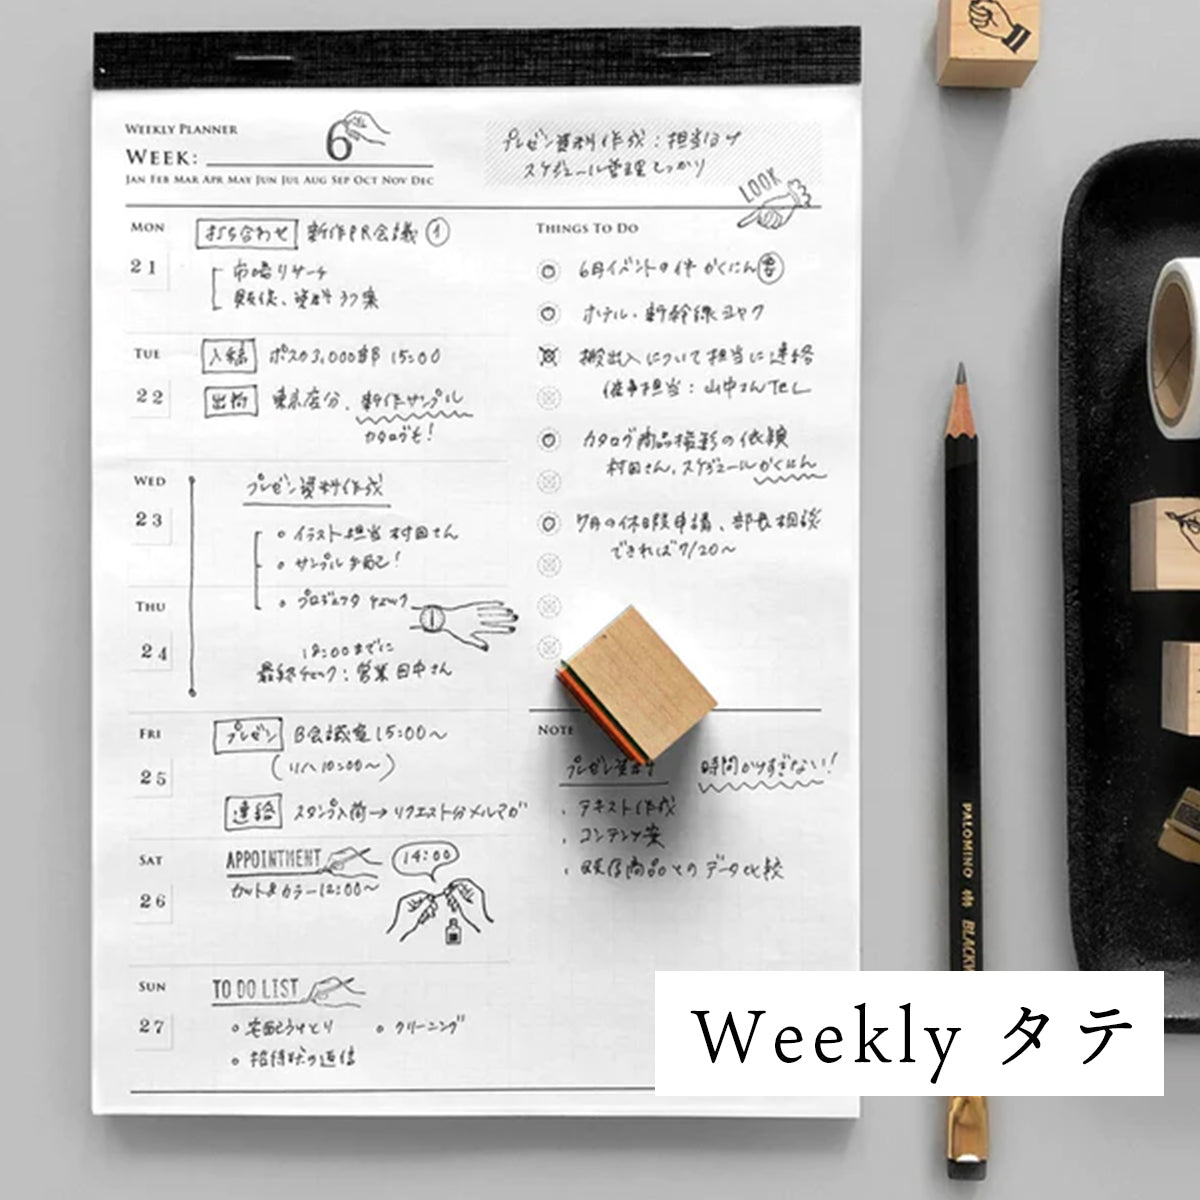 WEEKLY PLANNER
WEEK: 6
JAN FEB MAR APR MAY JUN JUL AUG SEP OCT NOV DEC
プレゼン資料作成：担当
スケジュール管理しっかり
LOOK
MON
21
打ち合わせ 新作PR会議 ①
市場リサーチ
販促、資料 ラフ案
TUE
22
入稿 ポスカ3,000部 15:00
出荷 東京店分、新作サンプル
カタログも！
WED
23
プレゼン資料作成
イラスト担当 村田さん
サンプル手配！
THU
24
プロジェクタ チェック
18:00までに
最終チェック：営業 田中さん
FRI
25
プレゼン B会議室 15:00〜
(リハ 10:00〜)
連絡 スタンプ入荷→リクエスト分メルマガ
SAT
26
APPOINTMENT
14:00
カット&カラー12:00〜
SUN
27
TO DO LIST
宅配うけとり
クリーニング
招待状の返信
THINGS TO DO
6月イベントの件 かくにん
ホテル・新幹線ヨヤク
搬出入について担当に連絡
催事担当：山中さんTEL
カタログ商品撮影の依頼
村田さん、スケジュールかくにん
7月の休日申請、部長相談
できれば7/20〜
NOTE
プレゼン資料
時間かけすぎない！
テキスト作成
コンテンツ案
既存商品とのデータ比較
PALOMINO
Weekly タテ